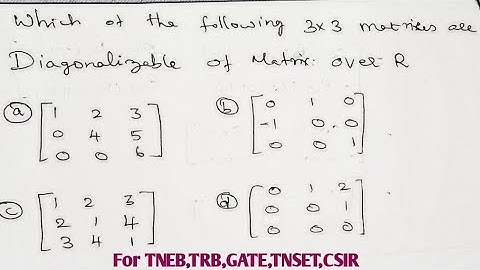 Which of the following 3x3 matrises are
Diagonalizable of Matrix. over R
a [1 2 3
0 4 5
0 0 6]
b [0 1 0
-1 0 0
0 0 1]
c [1 2 3
2 1 4
3 4 1]
d [0 1 2
0 0 1
0 0 0]
For TNEB,TRB,GATE,TNSET,CSIR